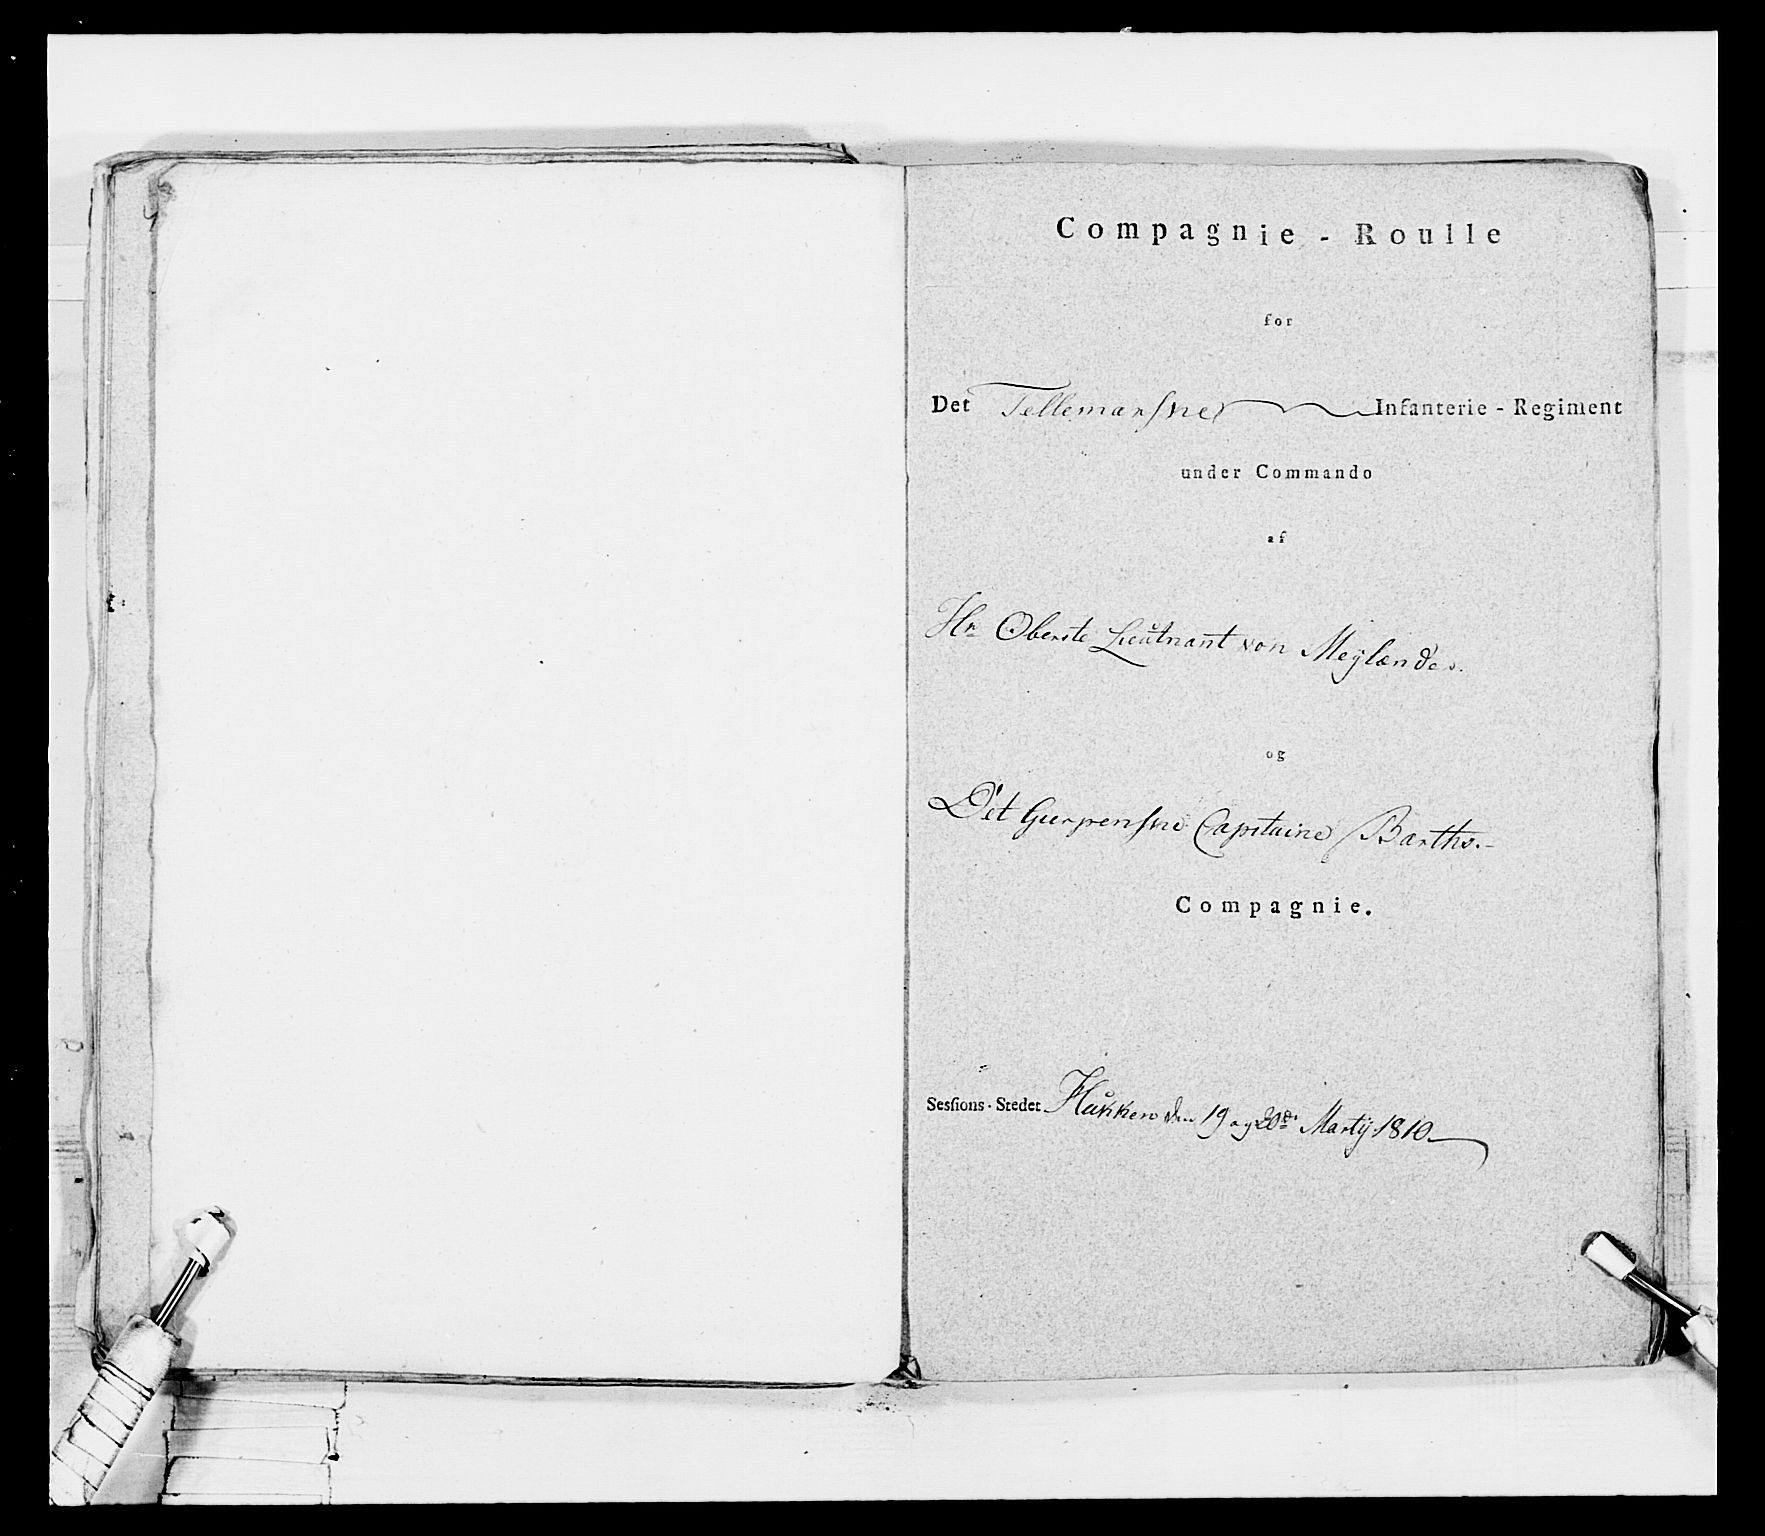 Compagnie - Roulle
for
Det Tellemarkske Infanterie - Regiment
under Commando
af
Hr Oberste Lieutnant von Meylænder.
og
Det Gierpenske Capitaine Barths.-
Compagnie.
Sessions-Stedet den 19 og 20de Martij 1810